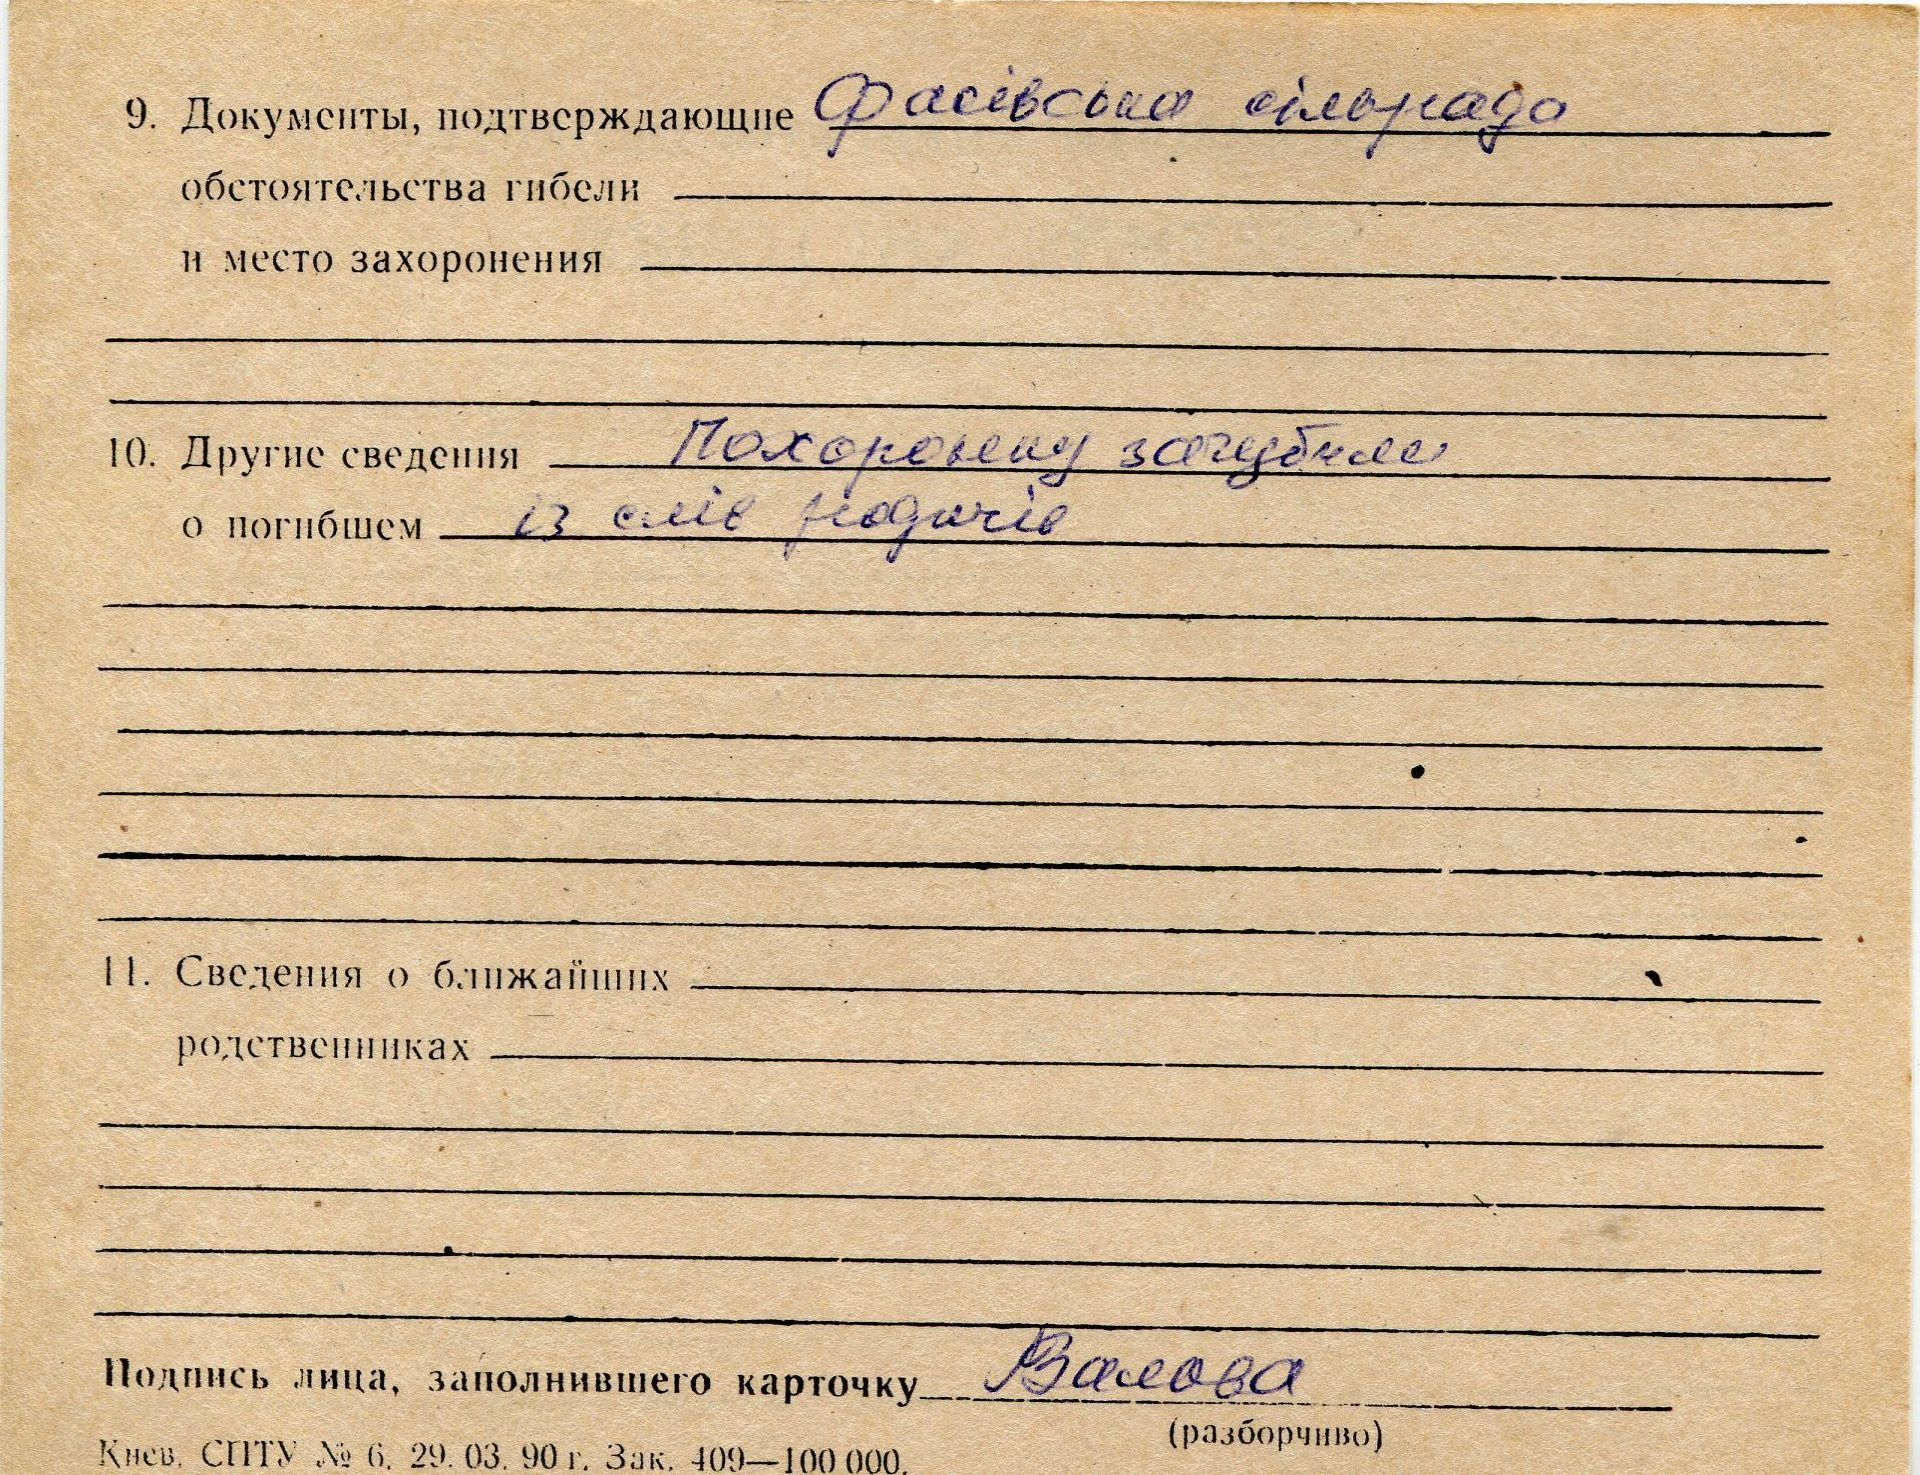 9. Документы, подтверждающие Фасівська сільрада
обстоятельства гибели
и место захоронения
10. Другие сведения Похоронку загубили
о погибшем із слів родичів
11. Сведения о ближайших
родственниках
Подпись лица, заполнившего карточку Валова
(разборчиво)
Киев. СПТУ № 6. 29. 03. 90 г. Зак. 409—100 000.